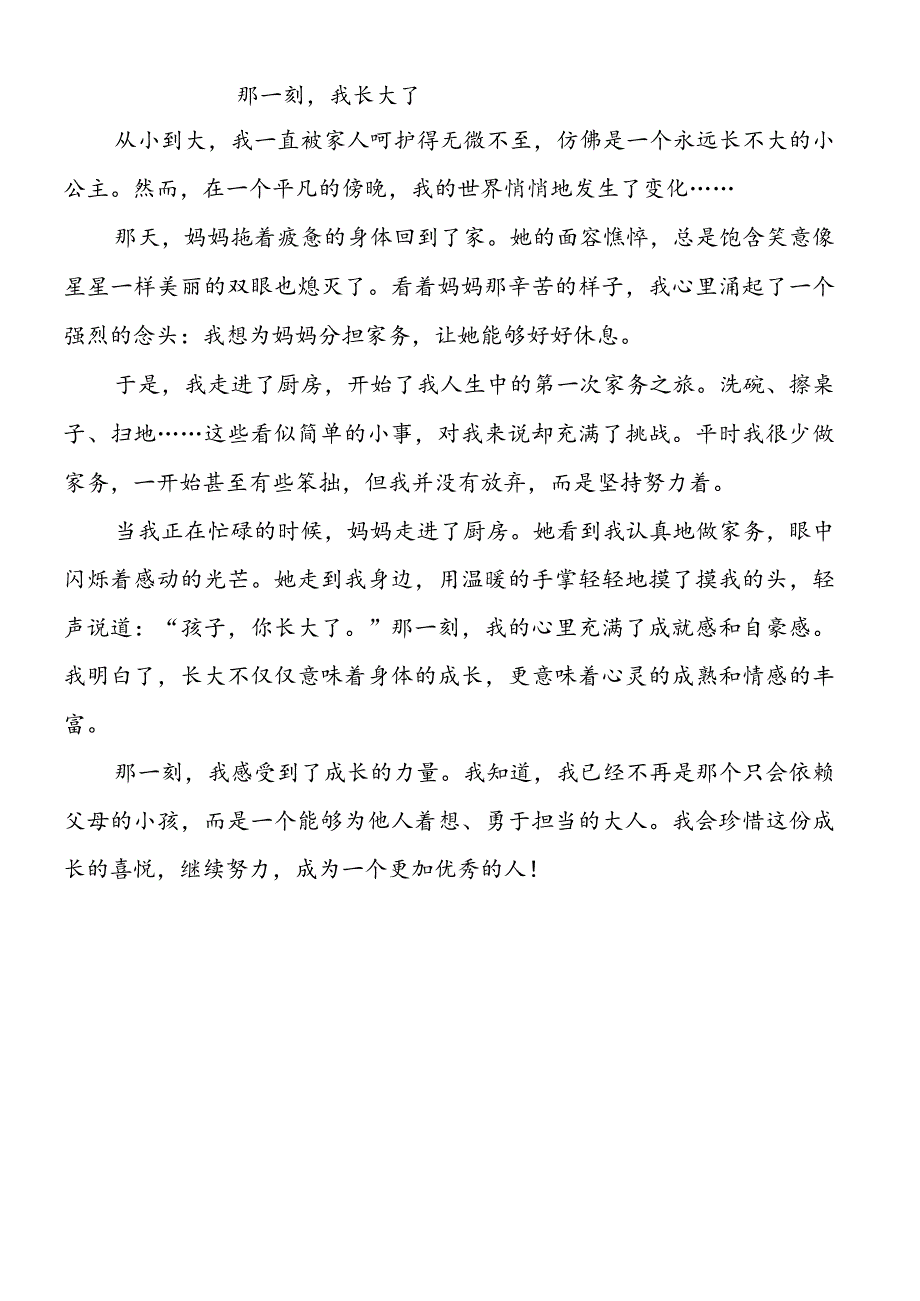 那一刻，我长大了
从小到大，我一直被家人呵护得无微不至，仿佛是一个永远长不大的小
公主。然而，在一个平凡的傍晚，我的世界悄悄地发生了变化……
那天，妈妈拖着疲惫的身体回到了家。她的面容憔悴，总是饱含笑意像
星星一样美丽的双眼也熄灭了。看着妈妈那辛苦的样子，我心里涌起了一个
强烈的念头：我想为妈妈分担家务，让她能够好好休息。
于是，我走进了厨房，开始了我人生中的第一次家务之旅。洗碗、擦桌
子、扫地……这些看似简单的小事，对我来说却充满了挑战。平时我很少做
家务，一开始甚至有些笨拙，但我并没有放弃，而是坚持努力着。
当我正在忙碌的时候，妈妈走进了厨房。她看到我认真地做家务，眼中
闪烁着感动的光芒。她走到我身边，用温暖的手掌轻轻地摸了摸我的头，轻
声说道：“孩子，你长大了。”那一刻，我的心里充满了成就感和自豪感。
我明白了，长大不仅仅意味着身体的成长，更意味着心灵的成熟和情感的丰
富。
那一刻，我感受到了成长的力量。我知道，我已经不再是那个只会依赖
父母的小孩，而是一个能够为他人着想、勇于担当的大人。我会珍惜这份成
长的喜悦，继续努力，成为一个更加优秀的人！